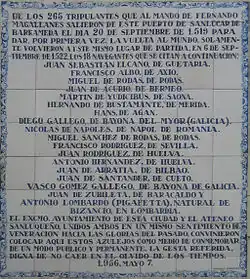 DE LOS 265 TRIPULANTES QUE AL MANDO DE FERNANDO
MAGALLANES SALIERON DE ESTE PUERTO DE SANLUCAR DE
BARRAMEDA EL DIA 20 DE SEPTIEMBRE DE 1.519 PARA
DAR, POR PRIMERA VEZ, LA VUELTA AL MUNDO, SOLAMEN-
TE VOLVIERON A ESTE MISMO LUGAR DE PARTIDA, EN 6 DE SEP-
TIEMBRE DE 1.522 LOS NAVEGANTES QUE SE CITAN A CONTINUACION:
JUAN SEBASTIAN ELCANO, DE GUETARIA.
FRANCISCO ALBO, DE AXIO.
MIGUEL DE RODAS, DE RODAS.
JUAN DE ACURIO, DE BERMEO.
MARTIN DE YUDICIBUS, DE SAONA.
HERNANDO DE BUSTAMANTE, DE MERIDA.
HANS, DE AGAN.
DIEGO GALLEGO, DE BAYONA DEL MYOR (GALICIA).
NICOLAS DE NAPOLES, DE NAPOL DE ROMANIA.
MIGUEL SANCHEZ DE RODAS, DE RODAS.
FRANCISCO RODRIGUEZ, DE SEVILLA.
JUAN RODRIGUEZ, DE HUELVA.
ANTONIO HERNANDEZ, DE HUELVA.
JUAN DE ARRATIA, DE BILBAO.
JUAN DE SANTANDER, DE CUETO.
VASCO GOMEZ GALLEGO, DE BAYONA DE GALICIA.
JUAN DE ZUBILETA, DE BARACALDO Y
ANTONIO LOMBARDO (PIGAFETTA), NATURAL DE
BIZANCIO, EN LOMBARDIA.
EL EXCMO. AYUNTAMIENTO DE ESTA CIUDAD Y EL ATENEO
SANLUQUEÑO, UNIDOS AMBOS EN UN MISMO SENTIMIENTO DE
VENERACION HACIA LAS GLORIAS DEL PASADO, CONVINIERON
COLOCAR AQUI ESTOS AZULEJOS COMO MEDIO DE CONMEMORAR
DE UN MODO PUBLICO Y PERMANENTE, LA GESTA REFERIDA,
DIGNA DE NO CAER EN EL OLVIDO DE LOS TIEMPOS.
1.956, MAYO 7.